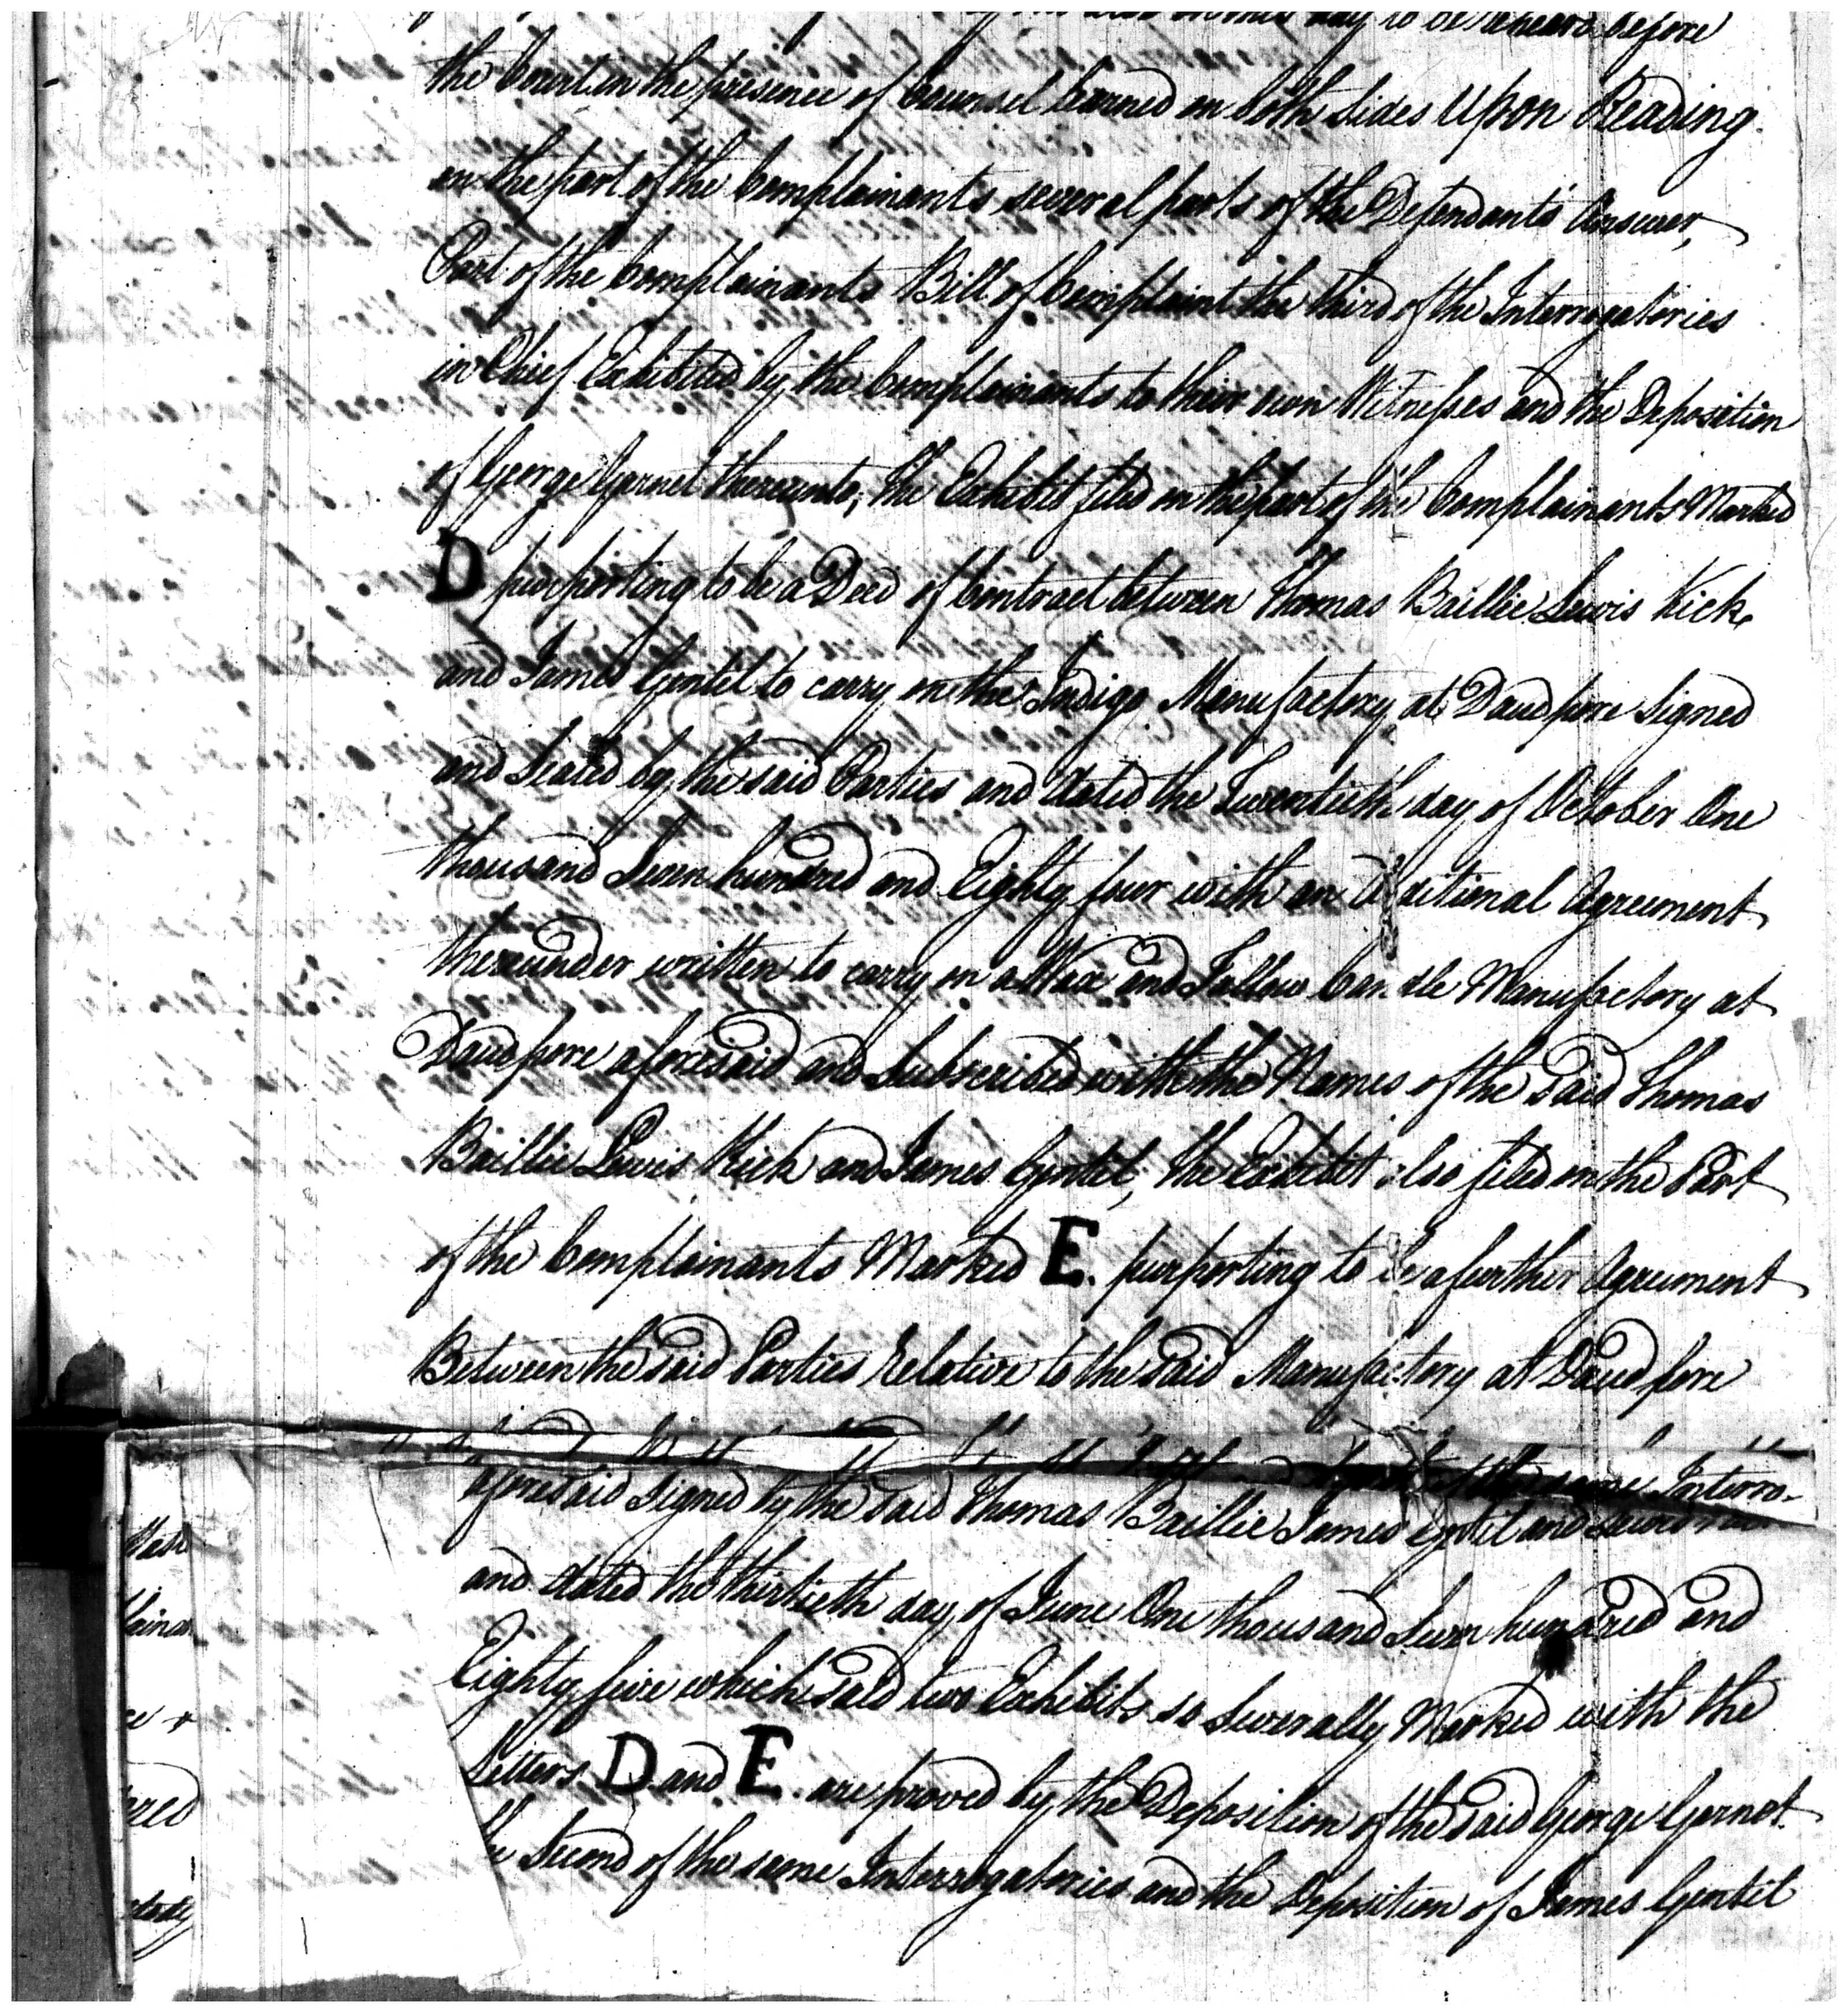 day to be reheard before
the Court in the presence of Counsel learned on both sides Upon Reading
on the part of the Complainants several parts of the Defendants Answer,
Part of the Complainants Bill of Complaint the third of the Interrogatories
in Chief Exhibited by the Complainants to their own Witnesses and the Deposition
of George Garnet thereunto, The Exhibit filed on the part of the Complainants Marked
D purporting to be a Deed of Contract between Thomas Baillie Lewis Kick
and James Gentil to carry on the Indigo Manufactory at Daudpore Signed
and Sealed by the said Parties and dated the Twentieth day of October One
thousand Seven hundred and Eighty four with an additional Agreement
thereunder written to carry on a Wax and Tallow Candle Manufactory at
Daudpore aforesaid and Subscribed with the Names of the said Thomas
Baillie Lewis Kick and James Gentil, The Exhibit also filed on the Part
of the Complainants Marked E. purporting to be a further Agreement
Between the said Parties Relative to the said Manufactory at Daudpore
of the same Interro-
aforesaid signed by the said Thomas Baillie James Gentil and Lewis
and dated the thirtieth day of June One thousand Seven hundred and
Eighty five which said two Exhibits so Severally Marked with the
Letters D and E. are proved by the Deposition of the said George Garnet
the Second of the same Interrogatories and the Deposition of James Gentil